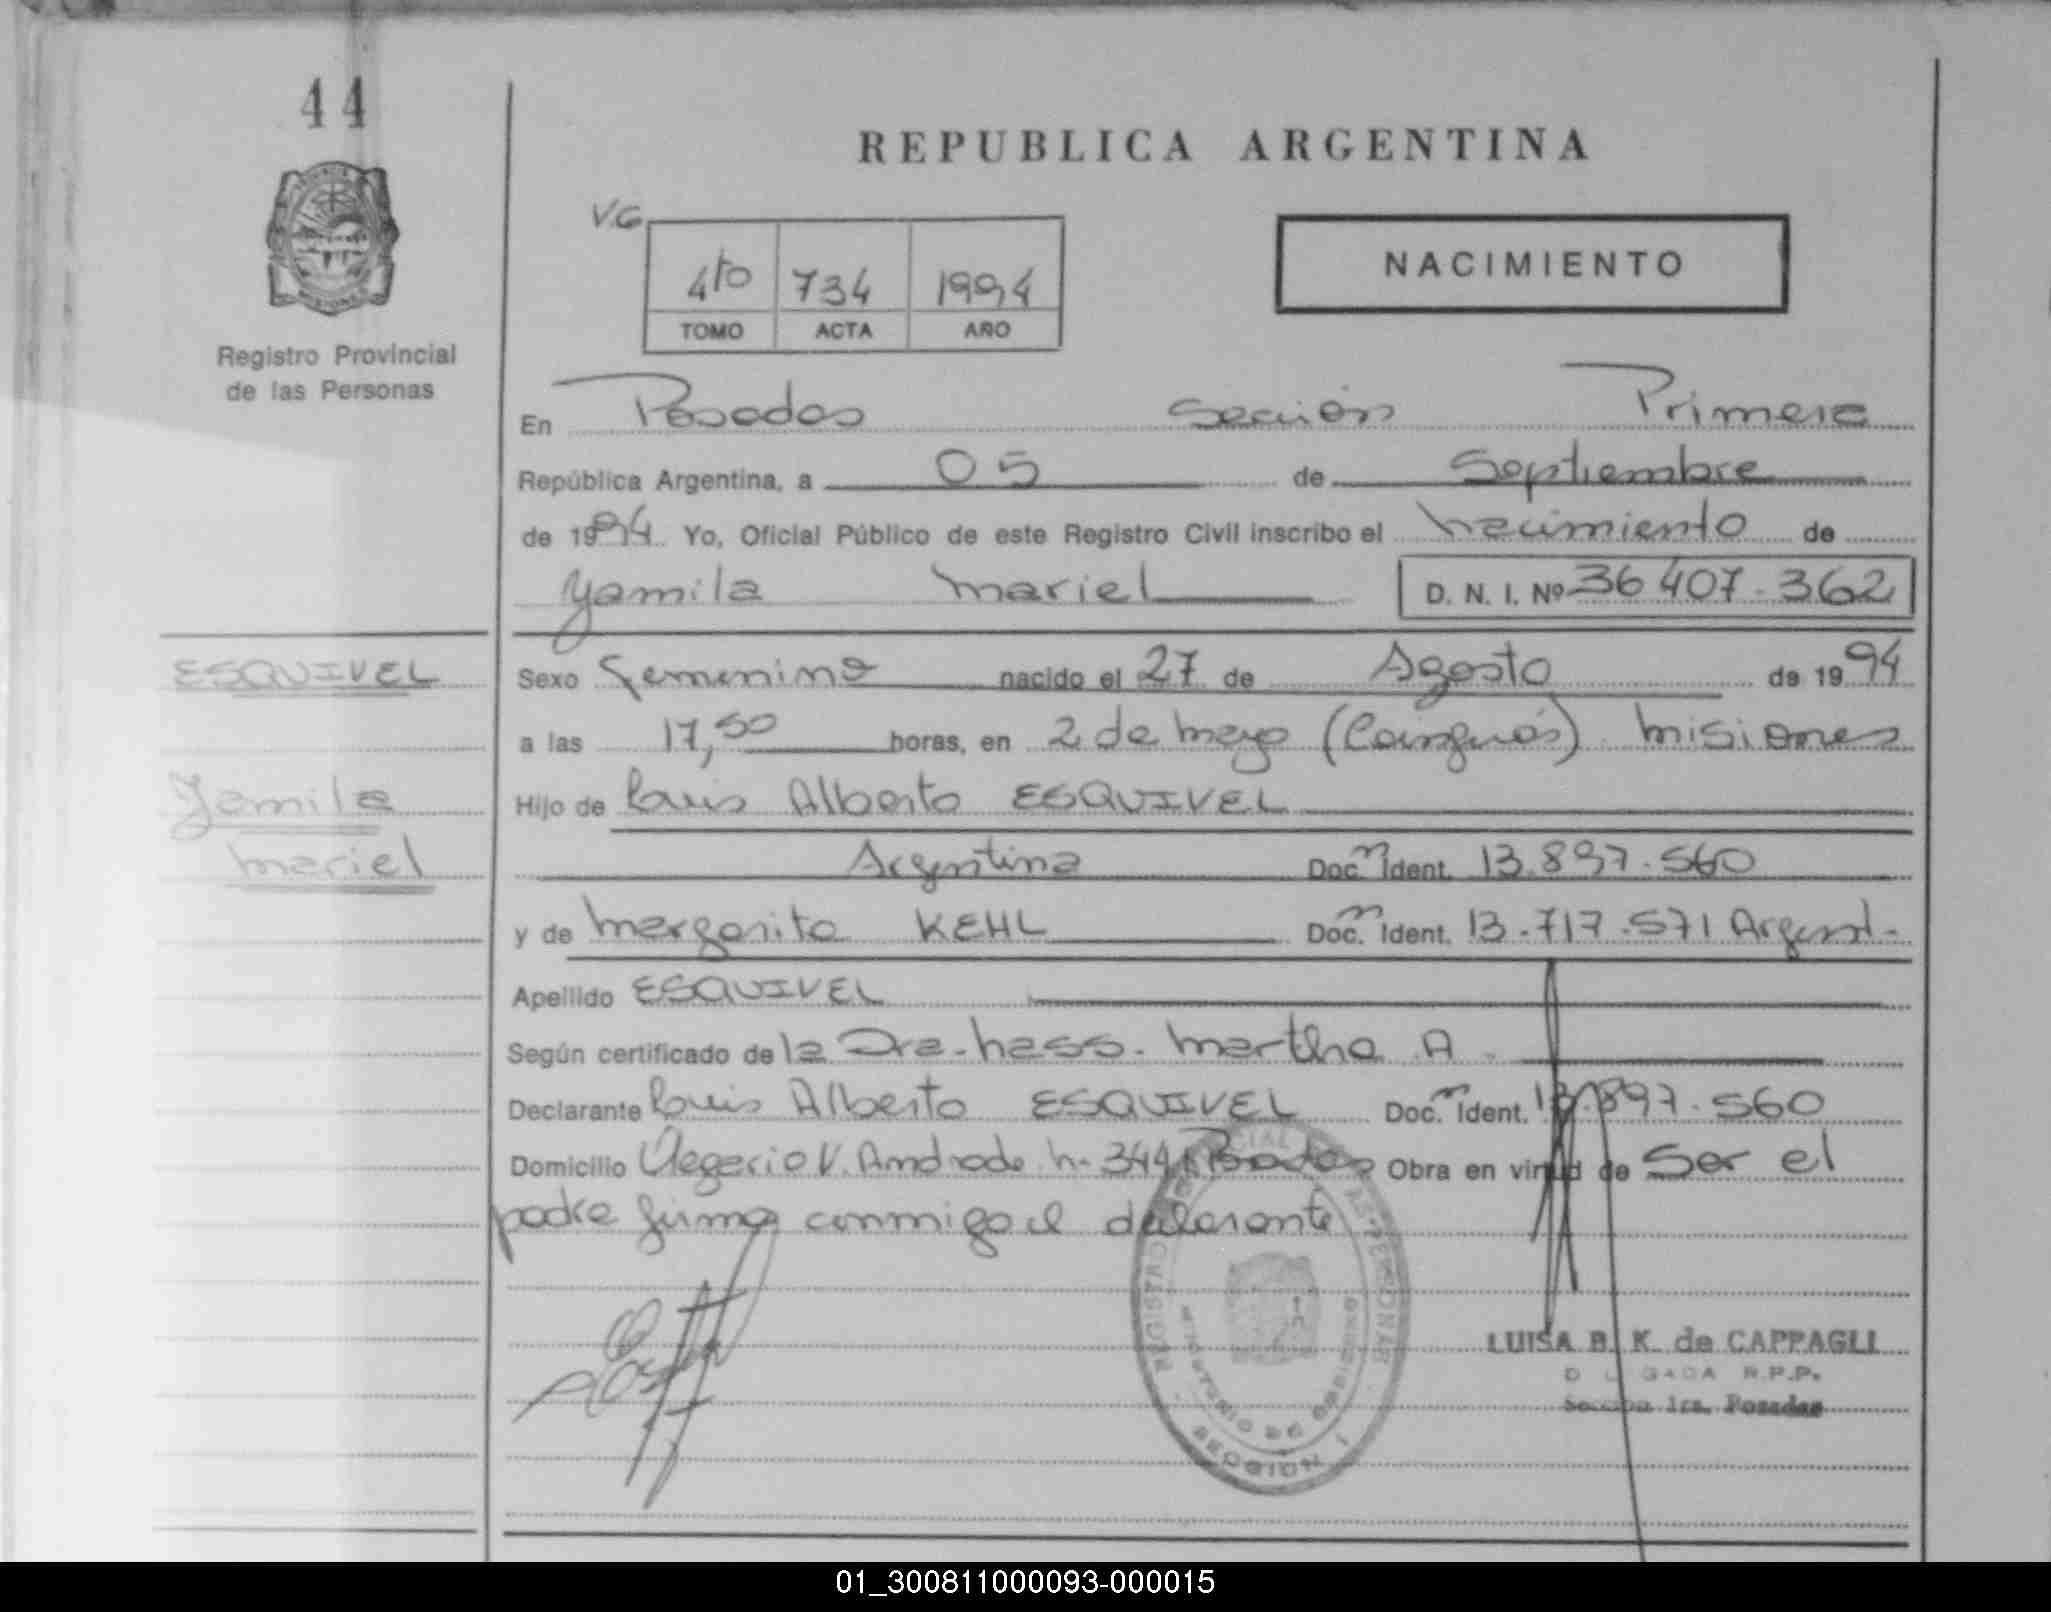 44
REPUBLICA ARGENTINA
V.G
4to 734 1994
TOMO ACTA AÑO
NACIMIENTO
Registro Provincial
de las Personas
En Posadas Sección Primera
República Argentina, a 05 de Septiembre
de 1994 Yo, Oficial Público de este Registro Civil inscribo el nacimiento de
Yamila Mariel D. N. I. Nº 36 407.362
ESQUIVEL
Sexo Femenino nacido el 27 de Agosto de 1994
a las 17,50 horas, en 2 de Mayo (Cainguás) Misiones
Yamila
Hijo de Luis Alberto ESQUIVEL
Mariel
Argentina Doc. m Ident. 13.897.560
y de Margarita KEHL Doc. m Ident. 13.717.571 Argent.
Apellido ESQUIVEL
Según certificado de la Dra. Hass. Martha A.
Declarante Luis Alberto ESQUIVEL Doc. m Ident. 13.897.560
Domicilio V. Andrade Posadas Obra en virtud de Ser el
padre firma conmigo el declarante
LUISA B. K. de CAPPAGLI
R.P.P.
Sección 1ra. Posadas
SECCION 1
01_300811000093-000015